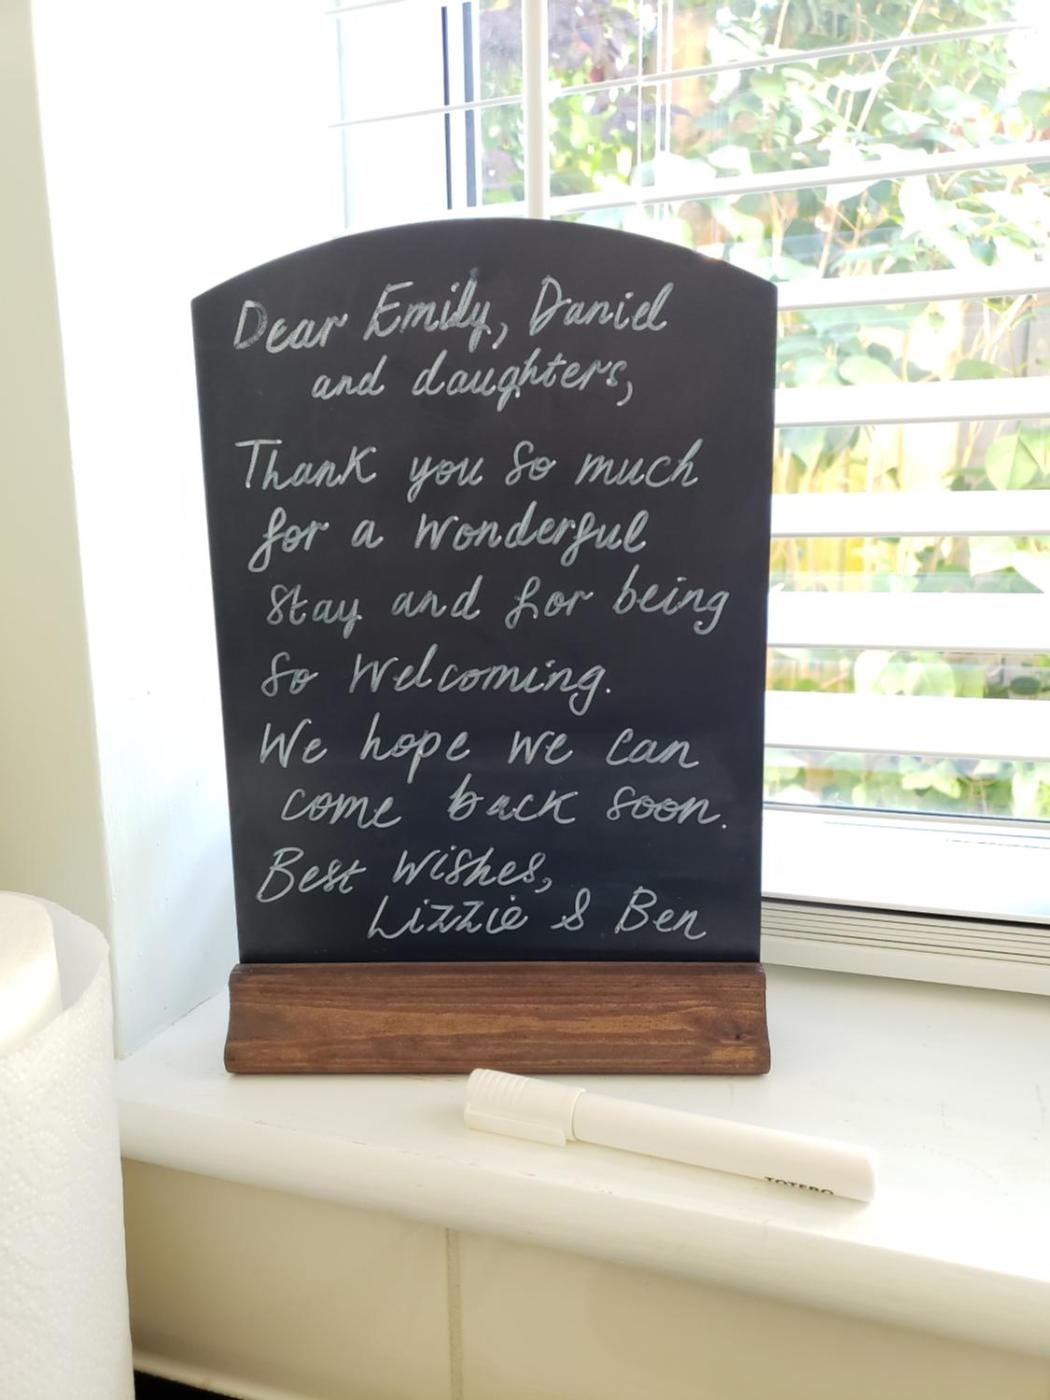 Dear Emily, Daniel
and daughters,
Thank you so much
for a wonderful
stay and for being
so welcoming.
We hope we can
come back soon.
Best wishes,
Lizzie & Ben